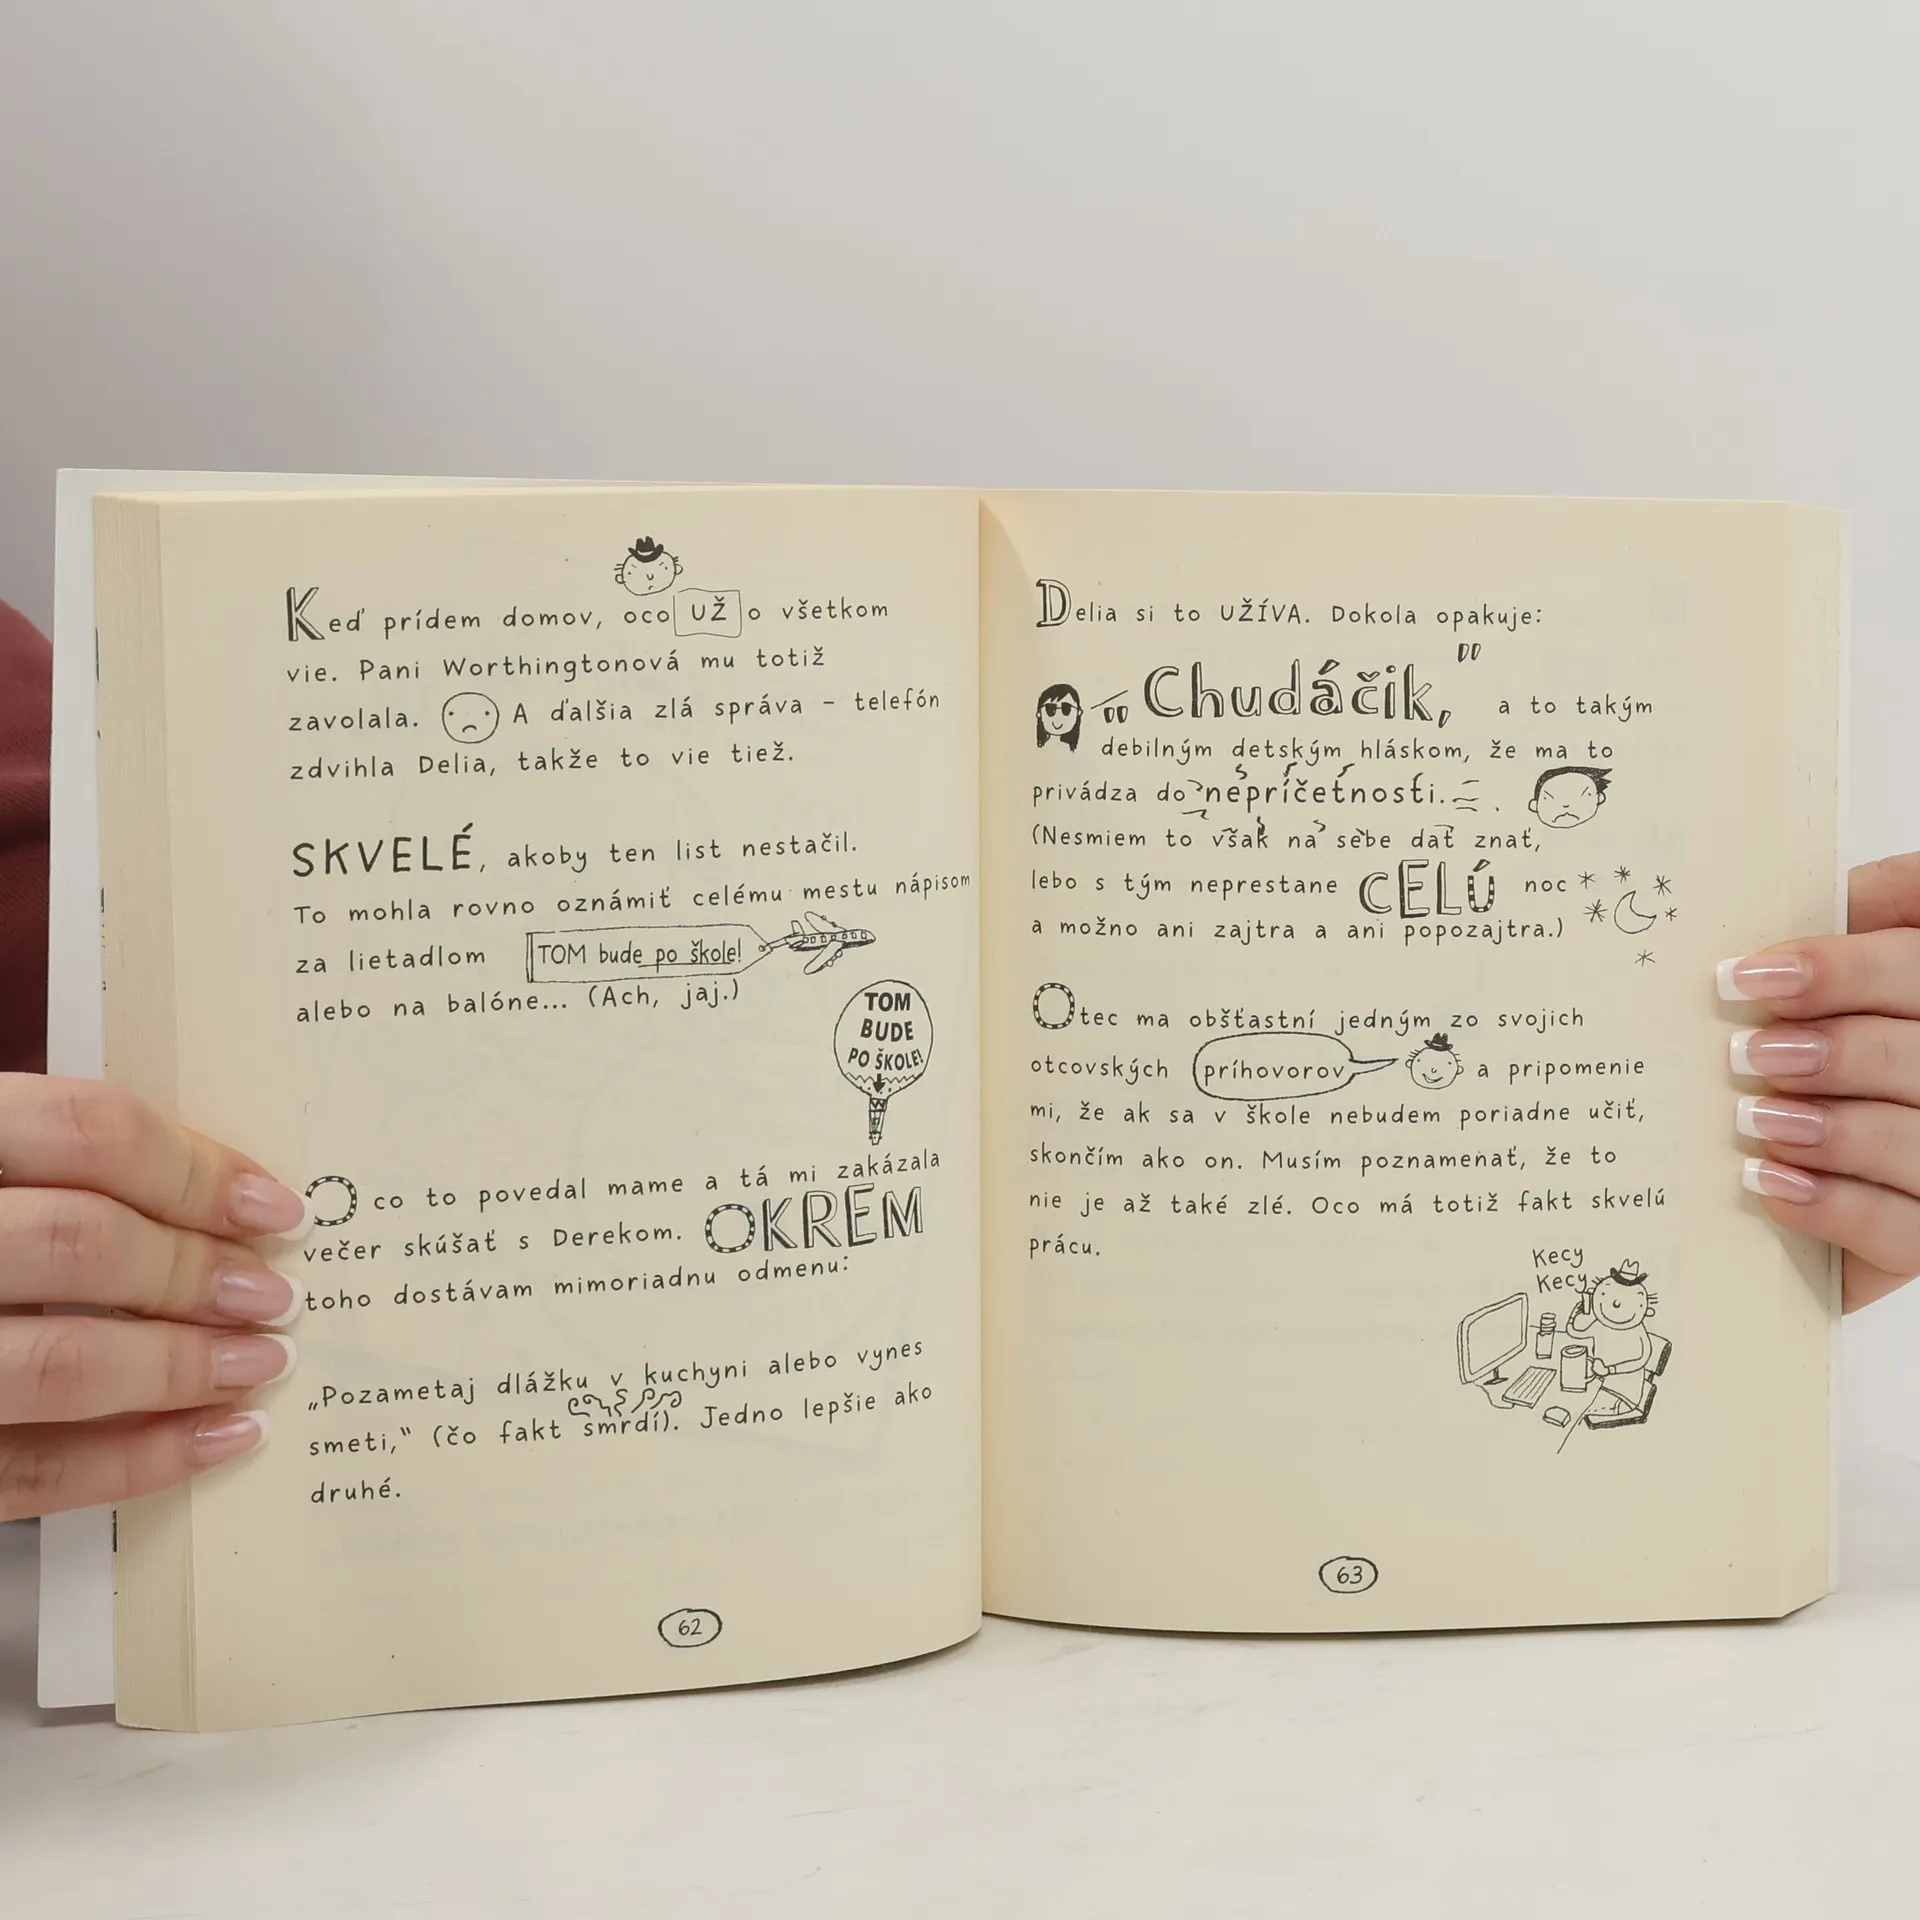 Keď prídem domov, oco UŽ o všetkom
vie. Pani Worthingtonová mu totiž
zavolala. A ďalšia zlá správa – telefón
zdvihla Delia, takže to vie tiež.
SKVELÉ, akoby ten list nestačil.
To mohla rovno oznámiť celému mestu nápisom
za lietadlom TOM bude po škole!
alebo na balóne... (Ach, jaj.)
TOM
BUDE
PO ŠKOLE!
Oco to povedal mame a tá mi zakázala
večer skúšať s Derekom. OKREM
toho dostávam mimoriadnu odmenu:
„Pozametaj dlážku v kuchyni alebo vynes
smeti,“ (čo fakt smrdí). Jedno lepšie ako
druhé.
62
Delia si to UŽÍVA. Dokola opakuje:
"Chudáčik," a to takým
debilným detským hláskom, že ma to
privádza do nepríčetnosti.
(Nesmiem to však na sebe dať znať,
lebo s tým neprestane CELÚ noc
a možno ani zajtra a ani popozajtra.)
Otec ma obšťastní jedným zo svojich
otcovských príhovorov a pripomenie
mi, že ak sa v škole nebudem poriadne učiť,
skončím ako on. Musím poznamenať, že to
nie je až také zlé. Oco má totiž fakt skvelú
prácu.
Kecy
Kecy
63